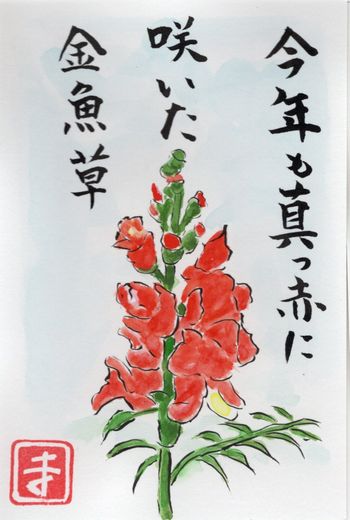 今年も真っ赤に
咲いた
金魚草
ま